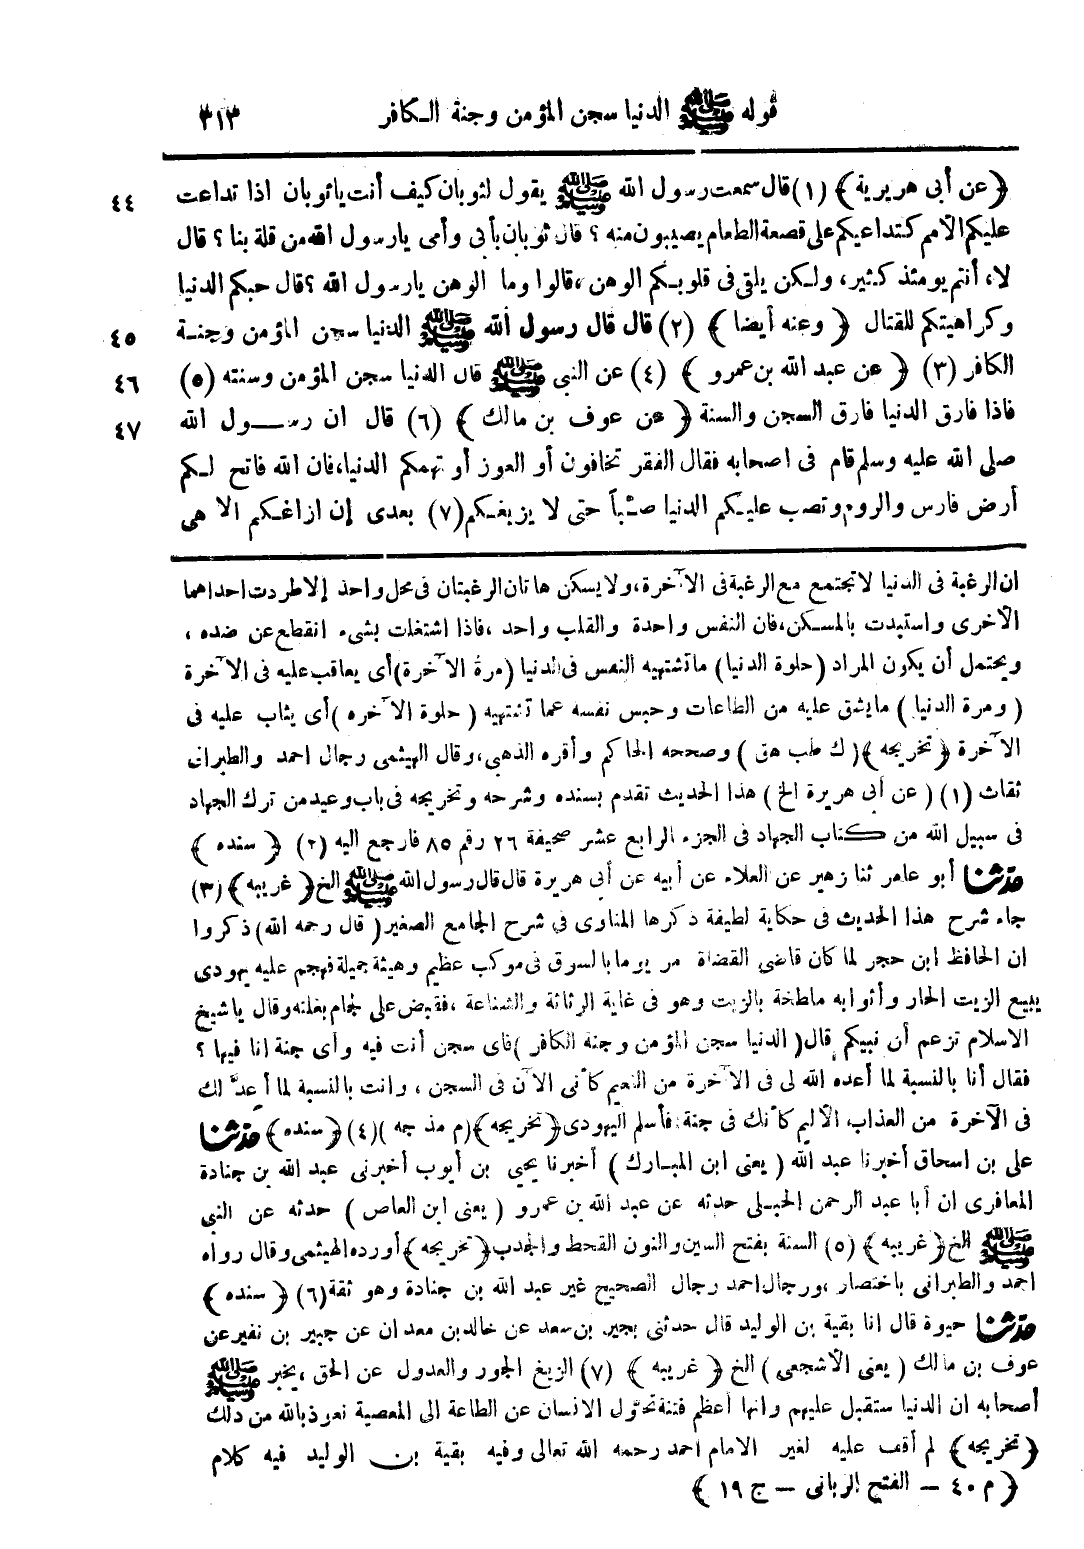 قوله ﷺ الدنيا سجن المؤمن وجنة الـكافر ٣١٣
﴿عن أبى هريرية﴾ (١) قال سمعت رسول الله ﷺ يقول لثوبان كيف أنت ياثوبان اذا تداعت ٤٤
عليكم الأمم كتداعيكم على قصعة الطعام يصيبون منه ؟ قال ثوبان بأبى وأمى يارسول الله من قلة بنا ؟ قال
لا، أنتم يومئذ كثير، ولـكن يلقى فى قلوبـكم الوهن، قالوا وما الوهن يارسول الله ؟ قال حبكم الدنيا
وكراهيتكم للقتال ﴿ وعنه أيضا ﴾ (٢) قال قال رسول الله ﷺ الدنيا سجن المؤمن وجنـة ٤٥
الكافر (٣) ﴿ عن عبد الله بن عمرو ﴾ (٤) عن النبى ﷺ قال الدنيا سجن المؤمن وسنته (٥) ٤٦
فاذا فارق الدنيا فارق السجن والسنة ﴿ عن عوف بن مالك ﴾ (٦) قال ان رســـول الله ٤٧
صلى الله عليه وسلم قام فى اصحابه فقال الفقر تخافون أو العوز أو تهمكم الدنيا، فان الله فاتح لـكم
أرض فارس والروم وتصب عليـكم الدنيا صـبًا حتى لا يزيغـكم (٧) بعدى إن ازاغـكم الا هى
ان الرغبة فى الدنيا لا تجتمع مع الرغبة فى الآخرة، ولا يسكن هاتان الرغبتان فى محل واحد إلا طردت احداهما
الأخرى واستبدت بالمسـكن، فان النفس واحدة والقلب واحد، فاذا اشتغلت بشىء انقطع عن ضده ،
ويحتمل أن يكون المراد (حلوة الدنيا) ما تشتهيه النفس فى الدنيا (مرة الآخرة) أى يعاقب عليه فى الآخرة
( ومرة الدنيا ) ما يشق عليه من الطاعات وحبس نفسه عما تشتهيه ( حلوة الآخره ) أى يثاب عليه فى
الآخرة ﴿تخريجه﴾ ( ك طب هق ) وصححه الحاكم وأقره الذهبى، وقال الهيثمى رجال احمد والطبرانى
ثقات (١) ( عن أبى هريرة الخ ) هذا الحديث تقدم بسنده وشرحه وتخريجه فى باب وعيد من ترك الجهاد
فى سبيل الله من كتاب الجهاد فى الجزء الرابع عشر صحيفة ٢٦ رقم ٨٥ فارجع اليه (٢) ﴿ سنده ﴾
حدثنا أبو عامر ثنا زهير عن العلاء عن أبيه عن أبى هريرة قال قال رسول الله ﷺ الخ ﴿ غريبه ﴾ (٣)
جاء شرح هذا الحديث فى حكاية لطيفة ذكرها المناوى فى شرح الجامع الصغير ( قال رحمه الله ) ذكروا
ان الحافظ ابن حجر لما كان قاضى القضاة مر يوما بالسوق فى موكب عظيم وهيئة جميلة فهجم عليه يهودى
يبيع الزيت الحار وأثوابه ملطخة بالزيت وهو فى غاية الرثاثة والشناعة ، فقبض على لجام بغلته وقال ياشيخ
الاسلام تزعم أن نبيكم قال ( الدنيا سجن المؤمن وجنة الكافر ) فاى سجن أنت فيه وأى جنة انا فيها ؟
فقال أنا بالنسبة لما أعده الله لى فى الآخرة من النعيم كأنى الآن فى السجن ، وانت بالنسبة لما أعدّ لك
فى الآخرة من العذاب الأليم كأنك فى جنة : فأسلم اليهودى ﴿تخريجه﴾ (م مذ جه ) (٤) ﴿سنده﴾ حدثنا
على بن اسحاق أخبرنا عبد الله ( يعنى ابن المبـارك ) أخبرنا يحيى بن أيوب أخبرنى عبد الله بن جنادة
المعافرى ان أبا عبد الرحمن الحبـلى حدثه عن عبد الله بن عمرو ( يعنى ابن العاص ) حدثه عن النبى
ﷺ الخ ﴿غريبه﴾ (٥) السنة بفتح السين والنون القحط والجدب ﴿تخريجه﴾ أورده الهيثمى وقال رواه
احمد والطبرانى باختصار ، ورجال احمد رجال الصحيح غير عبد الله بن جنادة وهو ثقة (٦) ﴿ سنده ﴾
حدثنا حيوة قال انا بقية بن الوليد قال حدثنى بجير بن سعد عن خالد بن معدان عن جبير بن نفير عن
عوف بن مالك ( يعنى الأشجعى ) الخ ﴿ غريبه ﴾ (٧) الزيغ الجور والعدول عن الحق ، يخبر ﷺ
أصحابه ان الدنيا ستقبل عليهم وانها أعظم فتنة تحوّل الانسان عن الطاعة الى المعصية نعوذ بالله من ذلك
﴿تخريجه﴾ لم أقف عليه لغير الامام احمد رحمه الله تعالى وفيه بقية بن الوليد فيه كلام
﴿ م ٤٠ — الفتح الربانى — ج ١٩ ﴾